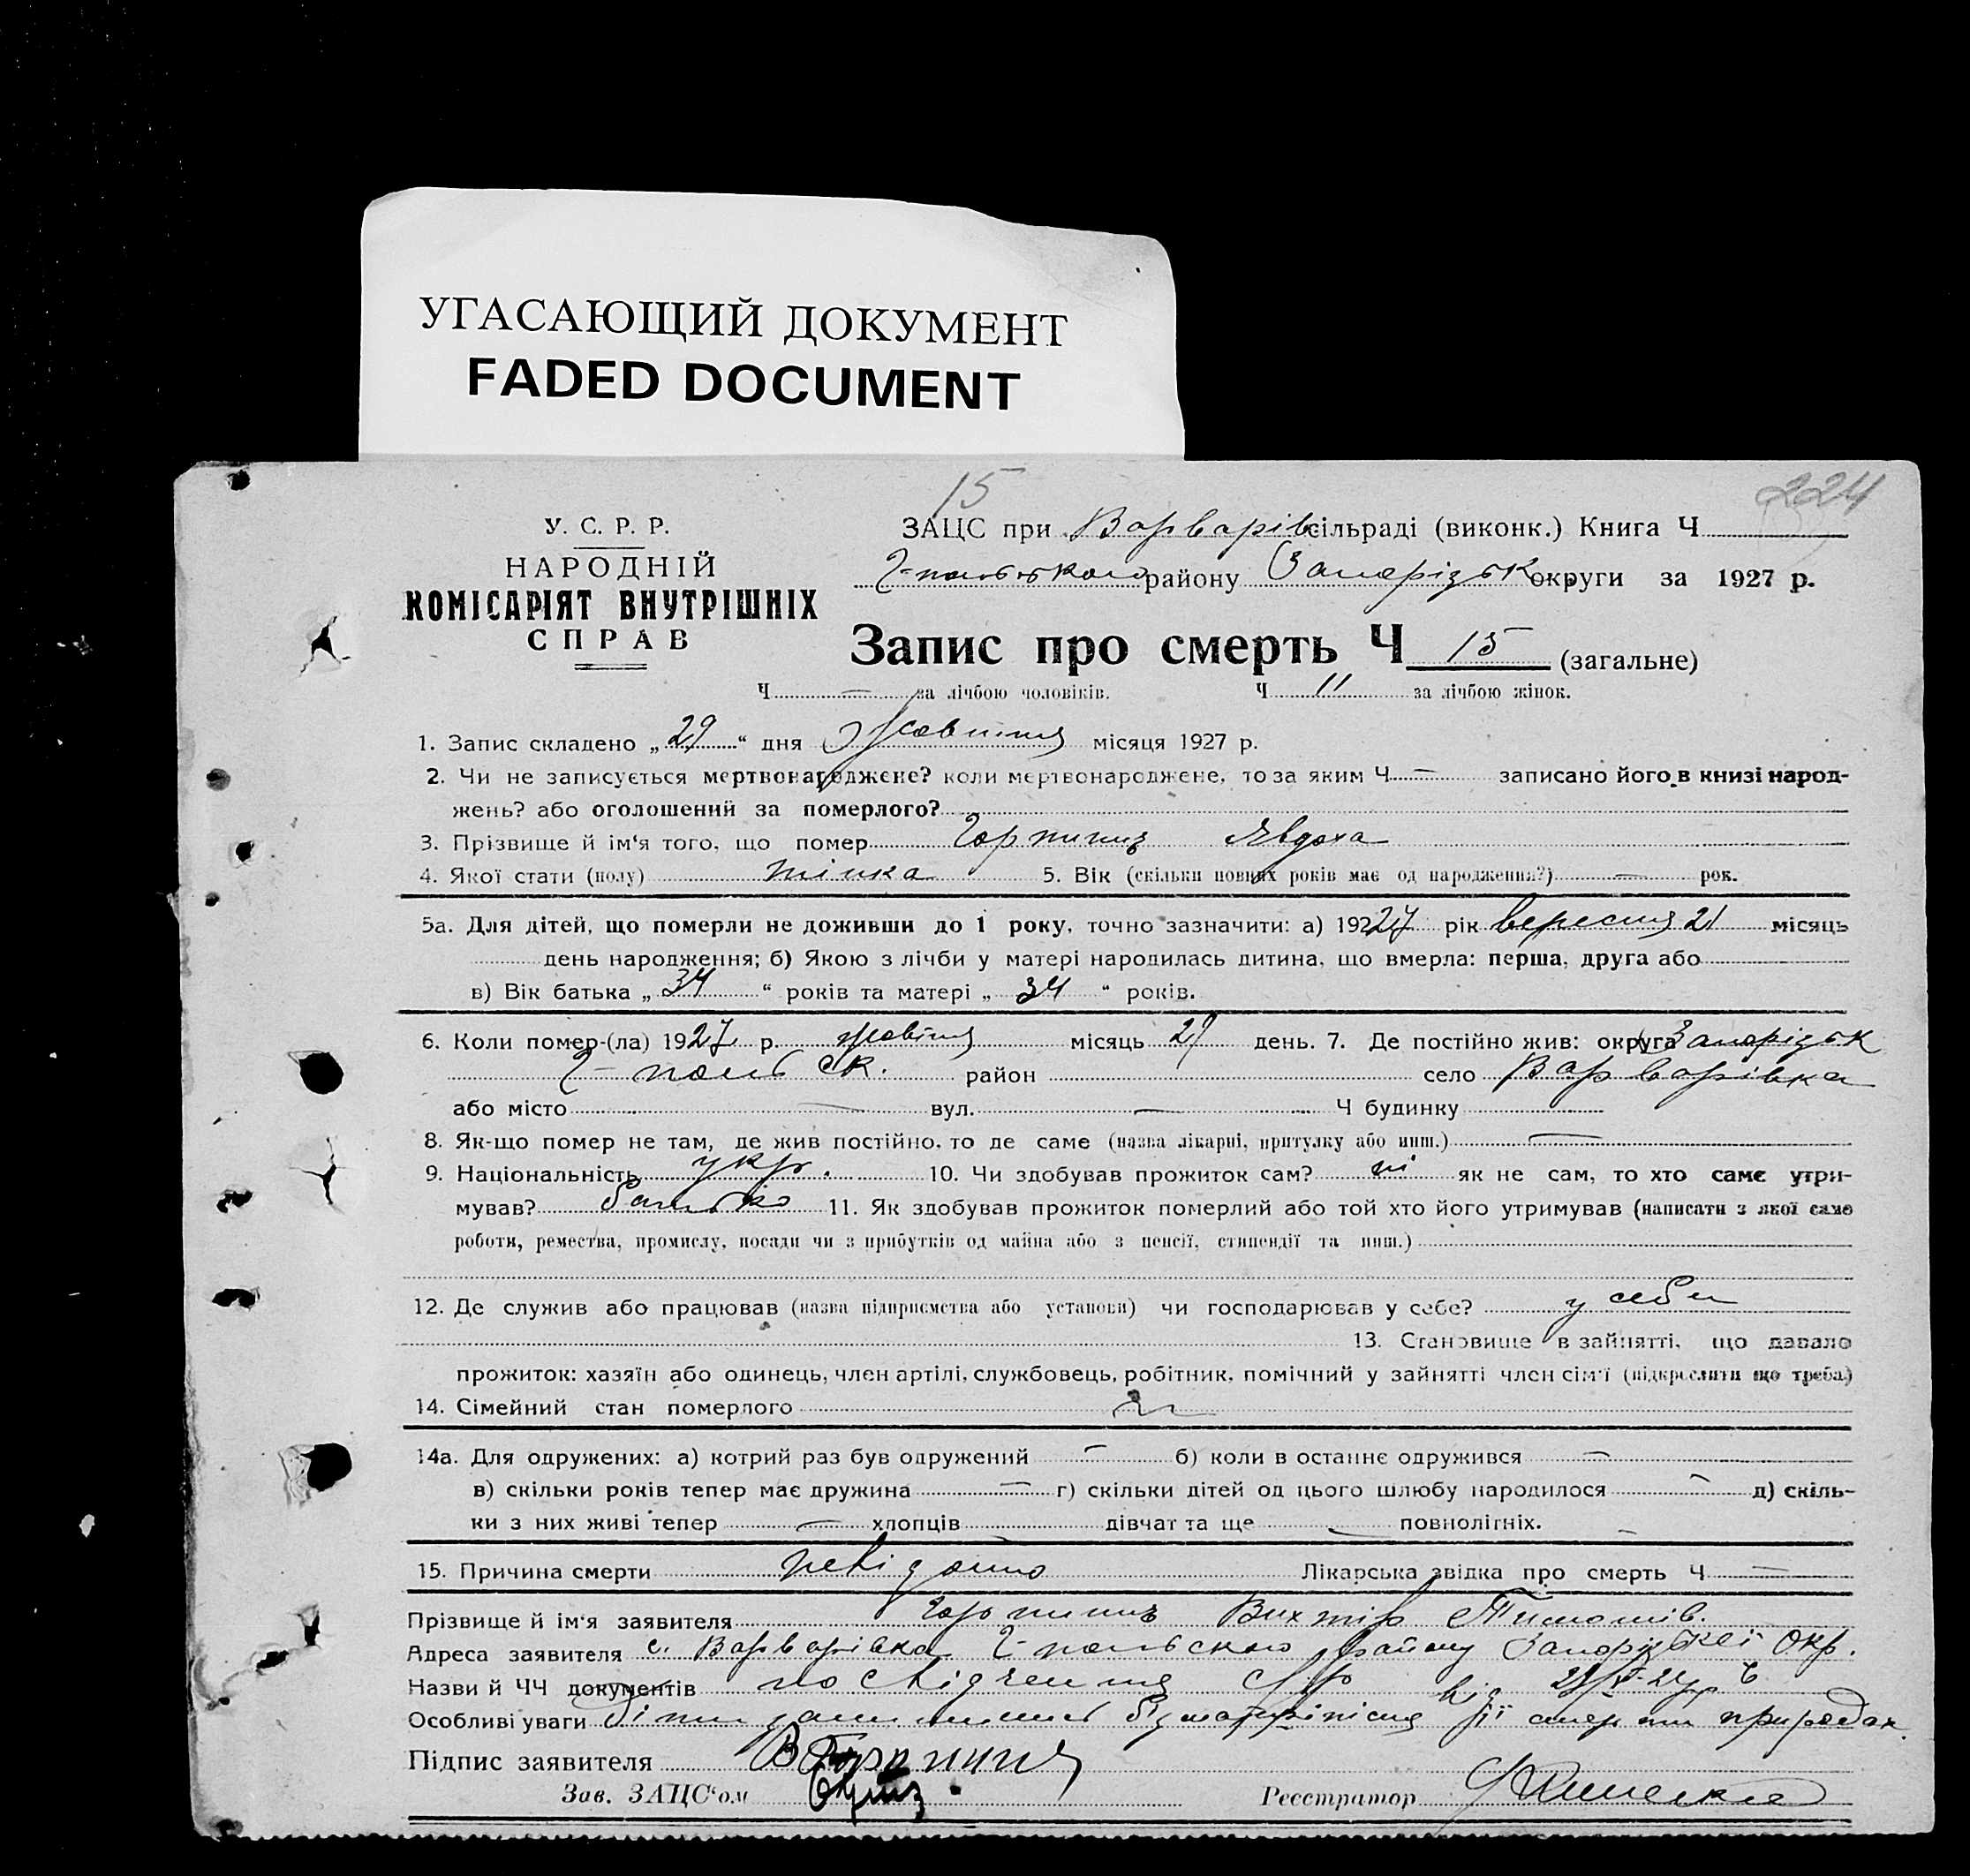 УГАСАЮЩИЙ ДОКУМЕНТ
FADED DOCUMENT
15
224
У. С. Р. Р.
НАРОДНІЙ
КОМІСАРІЯТ ВНУТРІШНІХ
СПРАВ
ЗАЦС при Варварів сільраді (виконк.) Книга Ч
Г-польського району Запорізьк округи за 1927 р.
Запис про смерть Ч 15 (загальне)
Ч — за лічбою чоловіків. Ч 11 за лічбою жінок.
1. Запис складено „29“ дня Жовтня місяця 1927 р.
2. Чи не записується мертвонароджене? коли мертвонароджене, то за яким Ч — записано його в книзі народ-
жень? або оголошений за померлого?
3. Прізвище й ім'я того, що помер Горпинич Явдоха
4. Якої стати (полу) жінка 5. Вік (скільки повних років має од народження?) — рок.
5а. Для дітей, що померли не доживши до 1 року, точно зазначити: а) 19227 рік вересня 21 місяць
день народження; б) Якою з лічби у матері народилась дитина, що вмерла: перша, друга або
в) Вік батька „34“ років та матері „34“ років.
6. Коли помер-(ла) 1927 р. жовтня місяць 29 день. 7. Де постійно жив: округа Запорізьк
Г-польськ. район село Варварівка
або місто — вул. — Ч будинку
8. Як-що помер не там, де жив постійно, то де саме (назва лікарні, притулку або инш.) —
9. Національність укр. 10. Чи здобував прожиток сам? ні як не сам, то хто саме утри-
мував? батько 11. Як здобував прожиток померлий або той хто його утримував (написати з якої саме
роботи, ремества, промислу, посади чи з прибутків од майна або з пенсії, стипендії та инш.)
12. Де служив або працював (назва підприємства або установи) чи господарював у себе? у себе
13. Становище в зайнятті, що давало
прожиток: хазяїн або одинець, член артілі, службовець, робітник, помічний у зайнятті член сім'ї (підкреслити що треба)
14. Сімейний стан померлого
14а. Для одружених: а) котрий раз був одружений — б) коли в останнє одружився —
в) скільки років тепер має дружина — г) скільки дітей од цього шлюбу народилося — д) скіль-
ки з них живі тепер — хлопців дівчат та ще — повнолітніх.
15. Причина смерти невідомо Лікарська звідка про смерть Ч —
Прізвище й ім'я заявителя Горпинич Вихтір Тимошів.
Адреса заявителя с. Варварівка Г-польського району Запорізької окр.
Назви й ЧЧ документів посвідчення від
Особливі уваги її смерти
Підпис заявителя
Зав. ЗАЦС'ом Реєстратор